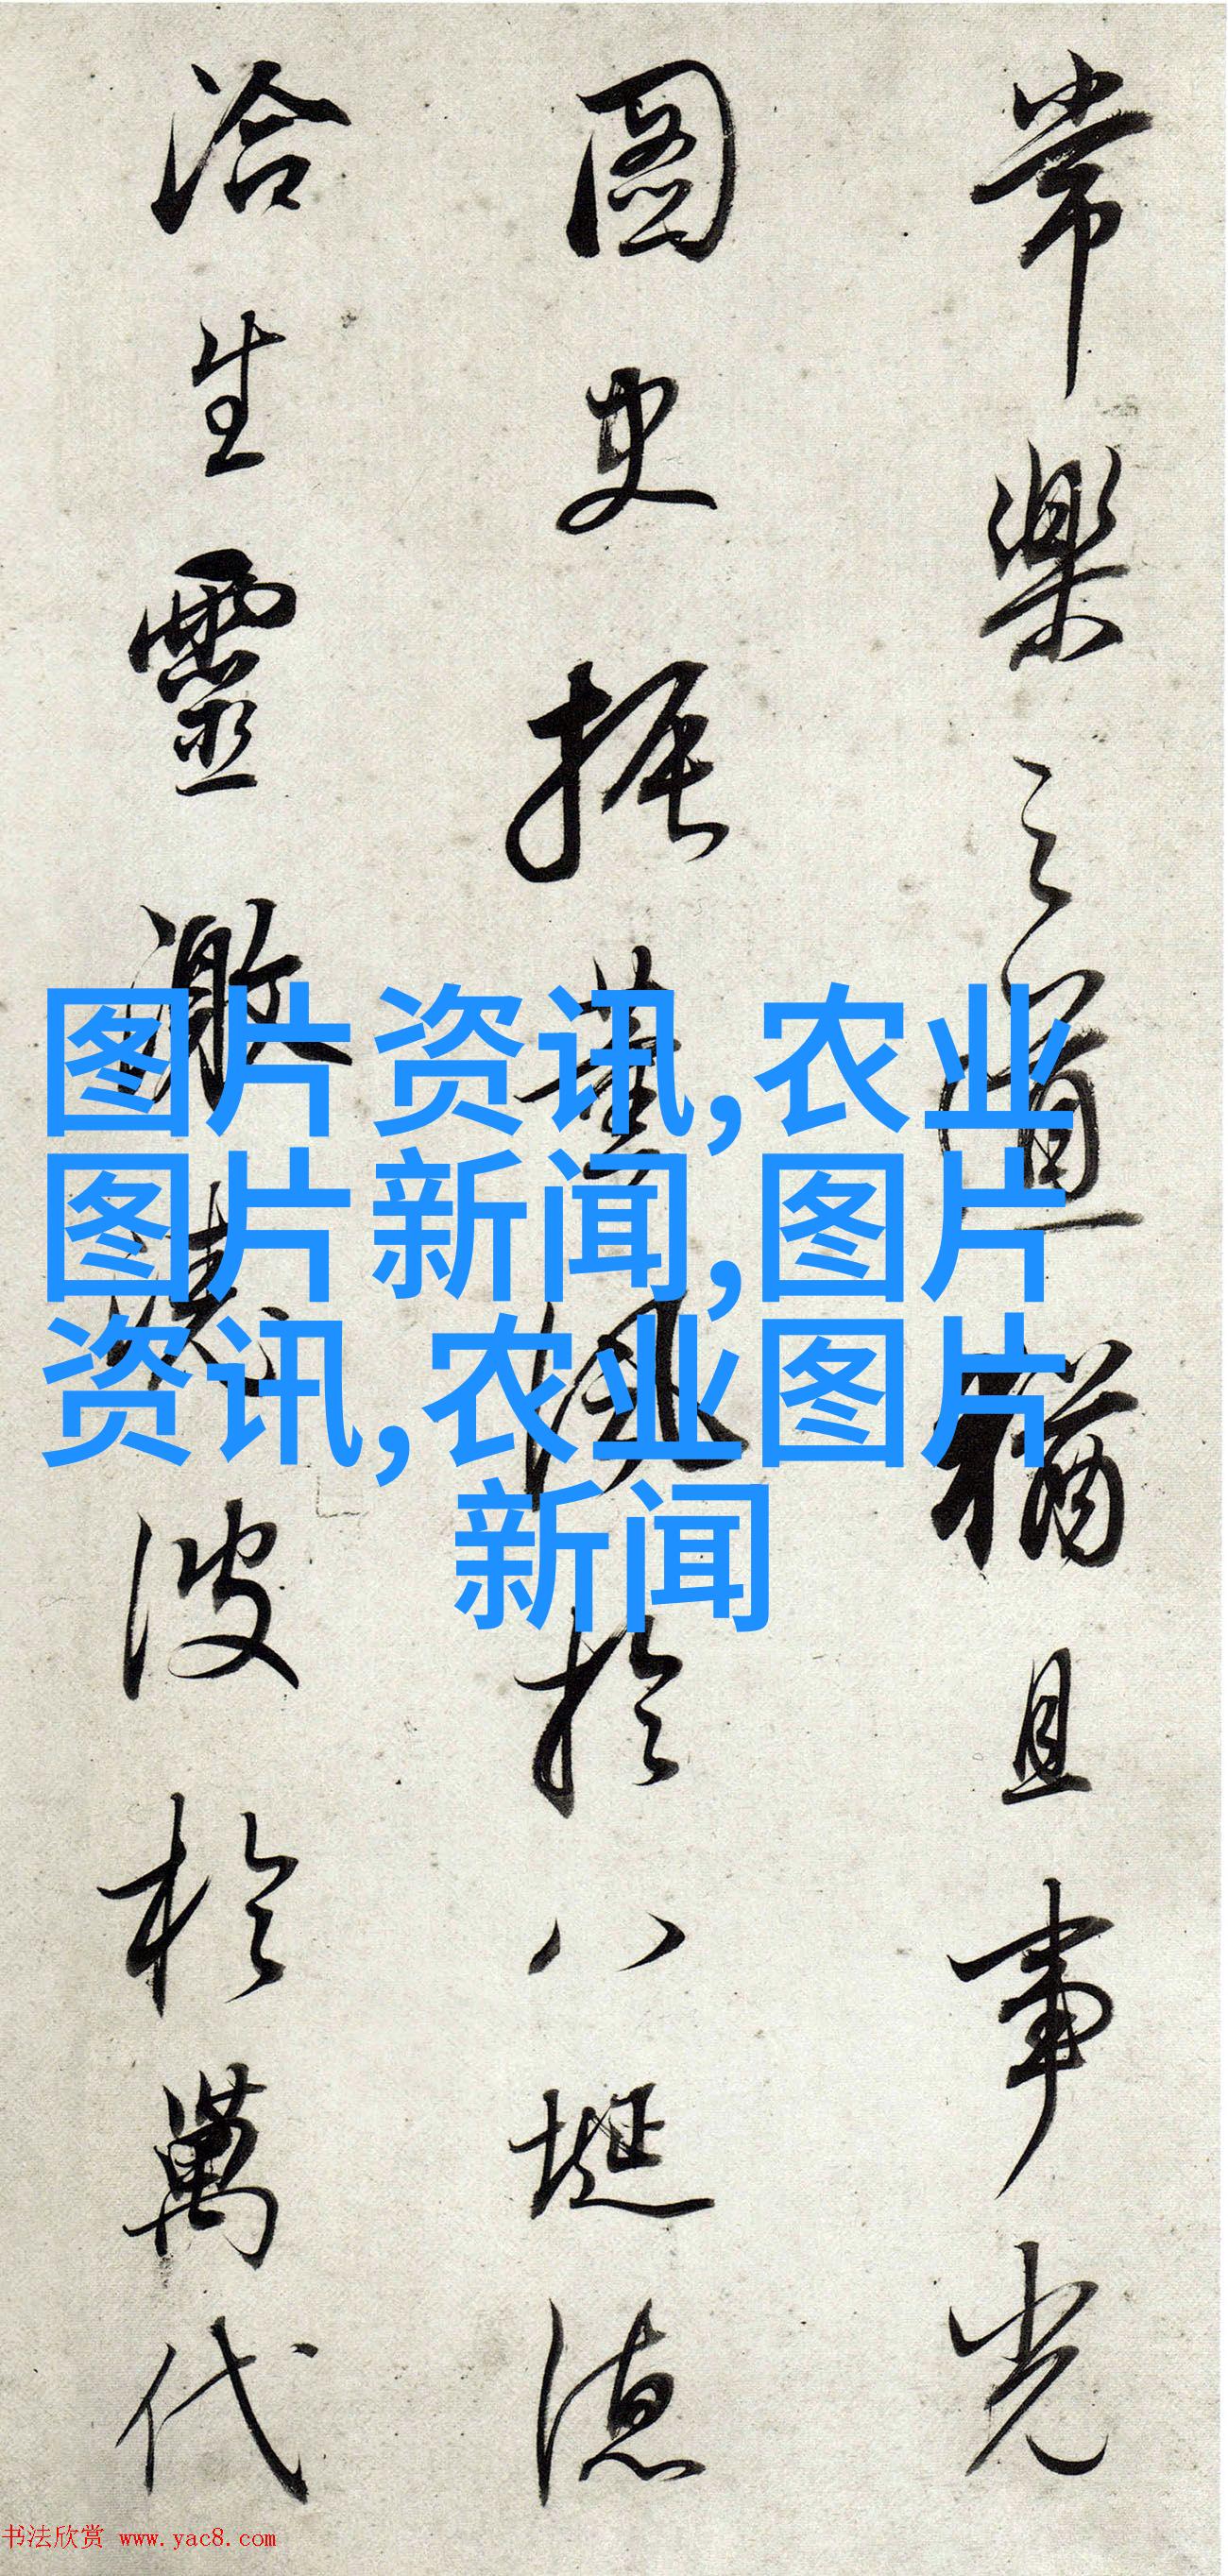 常樂之道猶且事光
圖史振薰風於八埏德
洽生靈激清波於萬代
图片资讯,农业
图片新闻,图片
资讯,农业图片
新闻
书法欣赏 www.yac8.com